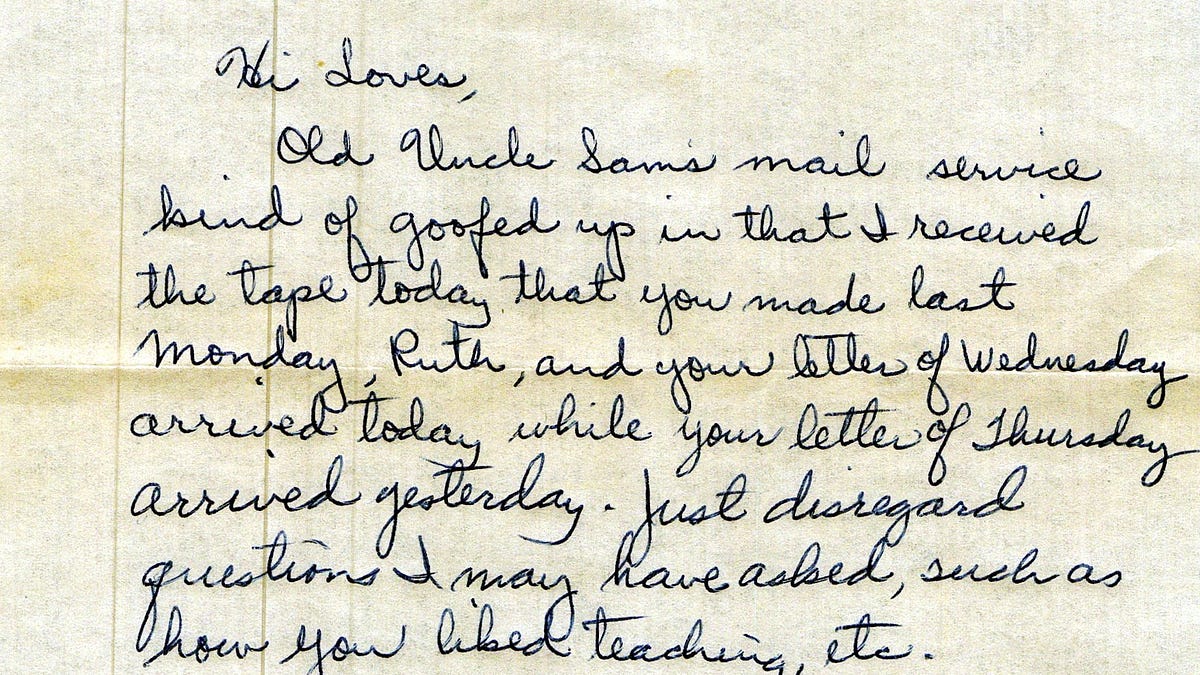 Hi Loves,
Old Uncle Sam's mail service
kind of goofed up in that I received
the tape today that you made last
Monday, Ruth, and your letter of Wednesday
arrived today while your letter of Thursday
arrived yesterday. Just disregard
questions I may have asked, such as
how you liked teaching, etc.